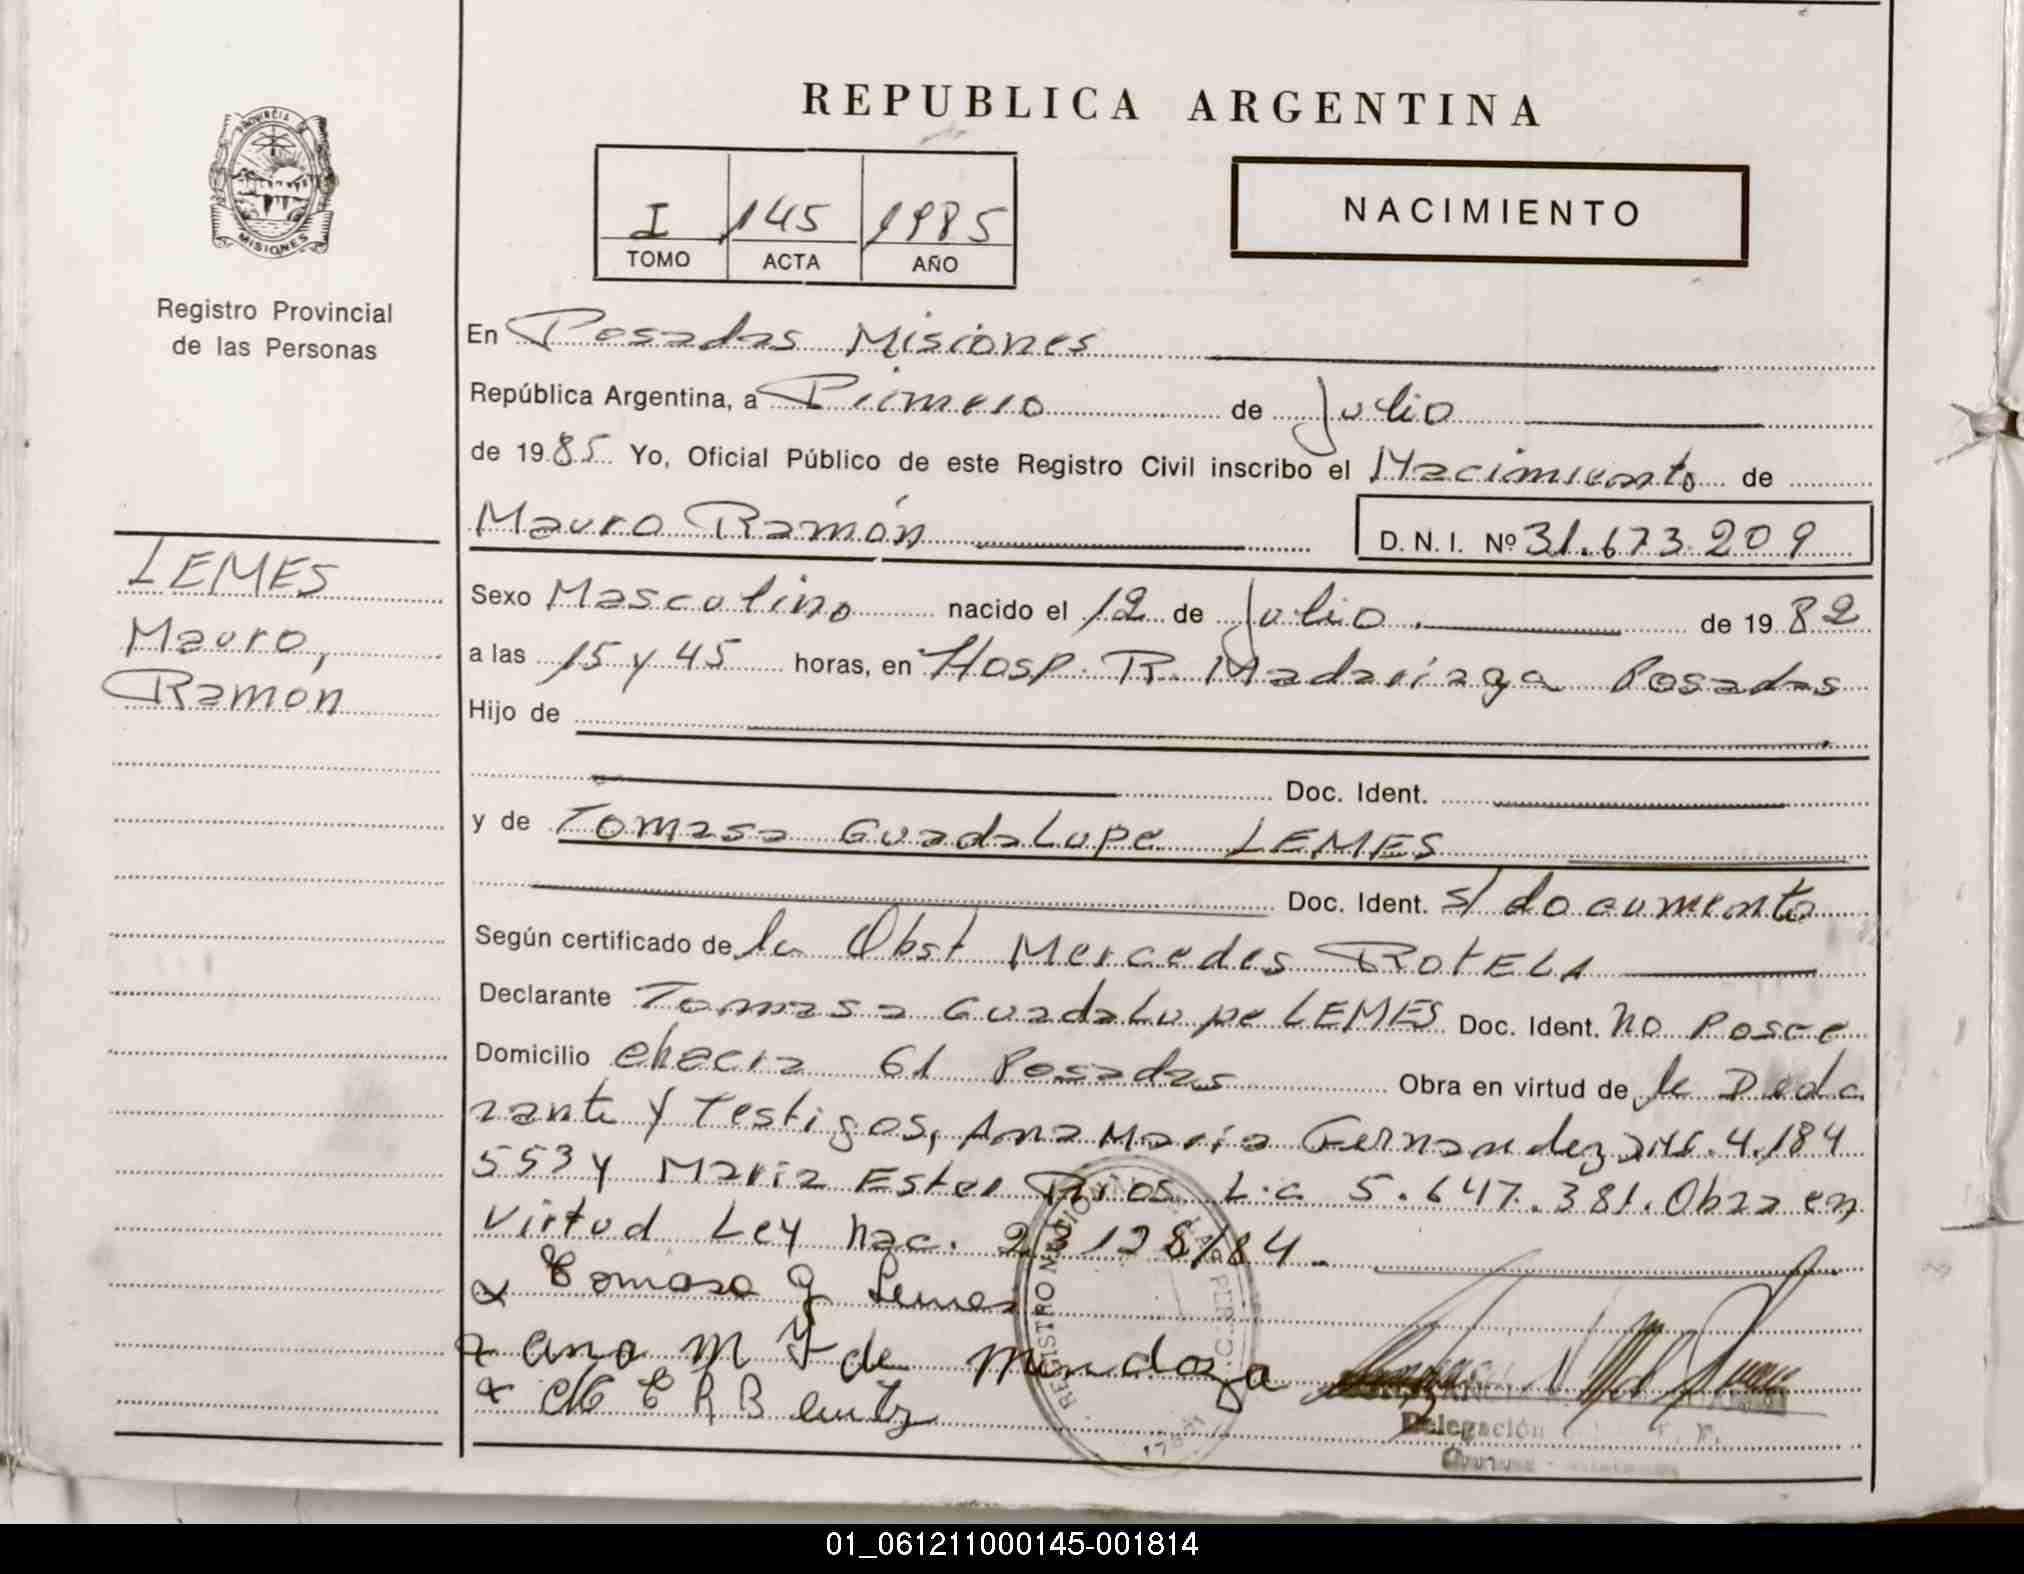 REPUBLICA ARGENTINA
PROVINCIA DE
MISIONES
Registro Provincial
de las Personas
I 145 1985
TOMO ACTA AÑO
NACIMIENTO
En Posadas Misiones
República Argentina, a Primero de Julio
de 1985 Yo, Oficial Público de este Registro Civil inscribo el Nacimiento de
Mauro Ramón D.N.I. Nº 31.673.209
LEMES
Mauro,
Ramón
Sexo Masculino nacido el 12 de Julio de 1982
a las 15 y 45 horas, en Hosp. R. Madariaga Posadas
Hijo de
Doc. Ident.
y de Tomasa Guadalupe LEMES
Doc. Ident. s/ documento
Según certificado de la Obst Mercedes ROTELA
Declarante Tomasa Guadalupe LEMES Doc. Ident. no Posee
Domicilio chacra 61 Posadas Obra en virtud de la Decla
rante y Testigos, Ana Maria Fernandez 4.184
553 y Maria Ester Rios L.C 5.647.381. Obra en
virtud Ley nac. 23128/84.-
x Tomasa G Lemes
x Ana M F de Mendoza
x M E R Benitez
REGISTRO
Delegación
01_061211000145-001814